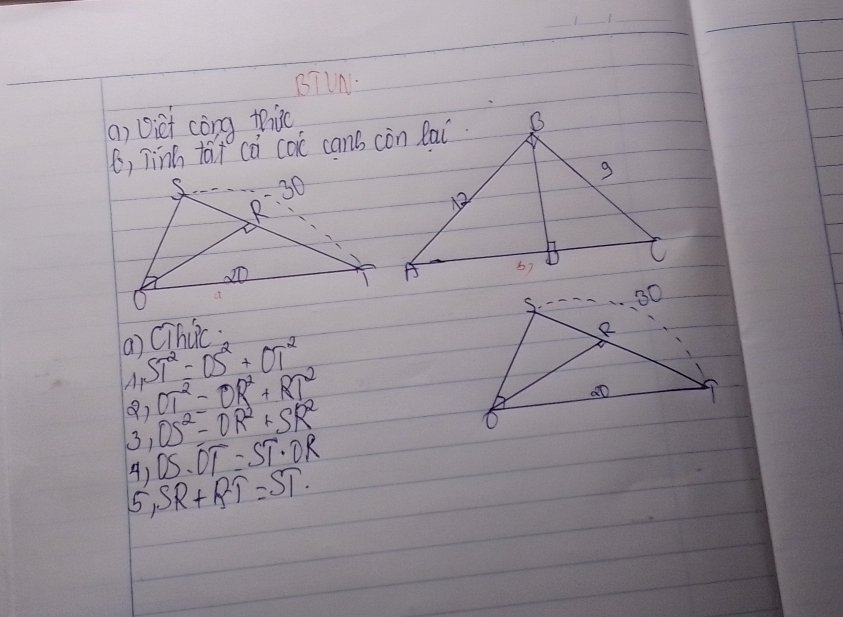 BTVN.
a, Viết công thức
b, Tính tất cả các cạnh còn lại.
S 30
R
O 20 T
a
B
12 9
A D C
b,
S 30
R
O 20 T
a) CThức:
1, ST² = OS² + OT²
2, OT² = OR² + RT²
3, OS² = OR² + SR²
4, OS . OT = ST . OR
5, SR + RT = ST.